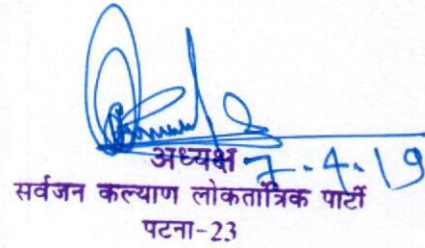 अध्यक्ष 7-4-19
सर्वजन कल्याण लोकतांत्रिक पार्टी
पटना-23